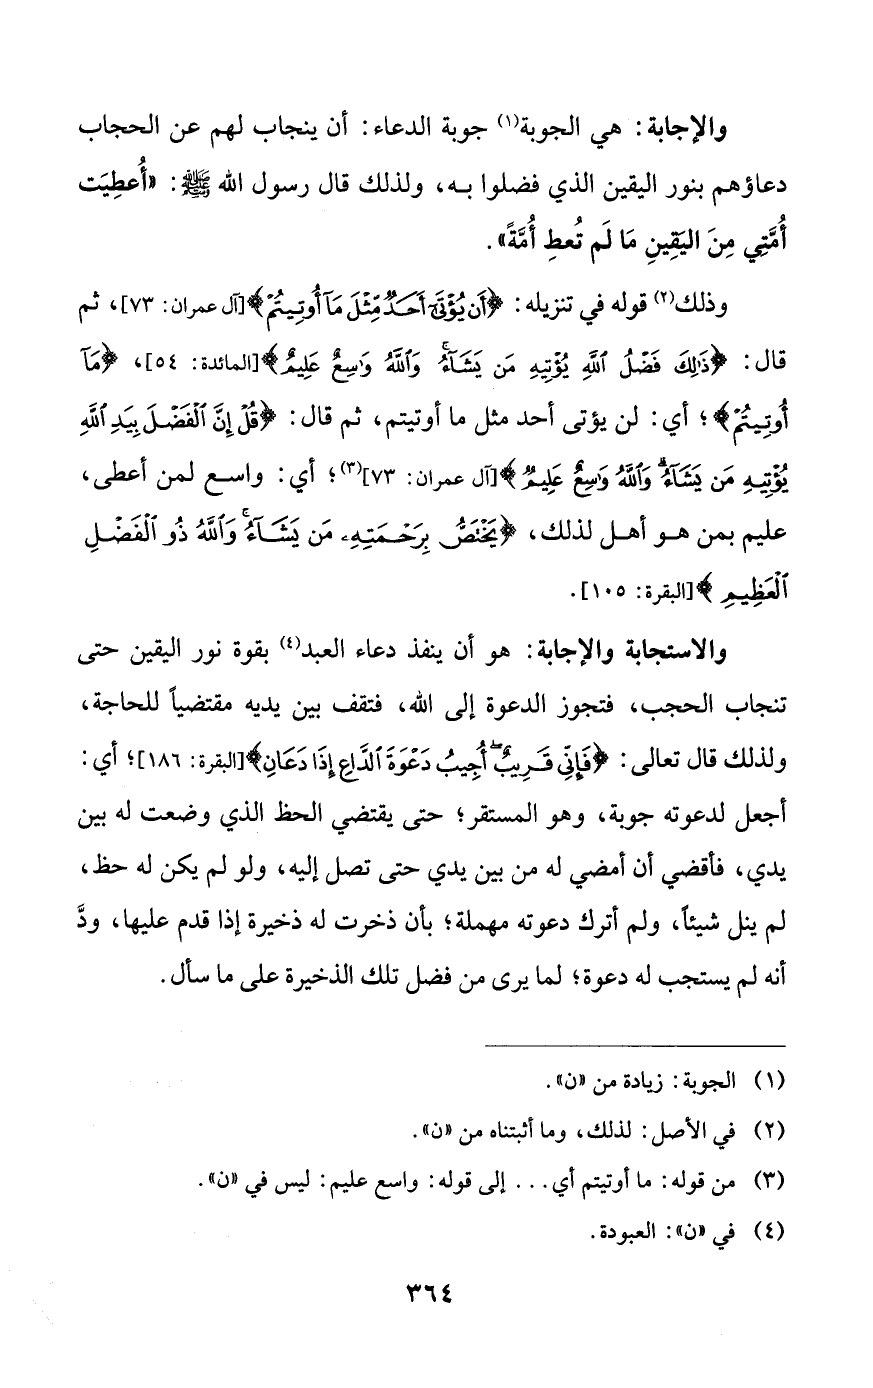 والإجابة: هي الجوبة(١) جوبة الدعاء: أن ينجاب لهم عن الحجاب
دعاؤهم بنور اليقين الذي فضلوا به، ولذلك قال رسول الله ﷺ: «أُعطِيَت
أُمَّتِي مِنَ اليَقِينِ مَا لَم تُعطِ أُمَّةً».
وذلك(٢) قوله في تنزيله: ﴿أَن يُؤْتَىٰٓ أَحَدٌ مِّثْلَ مَآ أُوتِيتُمْ﴾[آل عمران: ٧٣]، ثم
قال: ﴿ذَٰلِكَ فَضْلُ ٱللَّهِ يُؤْتِيهِ مَن يَشَآءُۚ وَٱللَّهُ وَٰسِعٌ عَلِيمٌ﴾[المائدة: ٥٤]، ﴿مَآ
أُوتِيتُمْ﴾؛ أي: لن يؤتى أحد مثل ما أوتيتم، ثم قال: ﴿قُلْ إِنَّ ٱلْفَضْلَ بِيَدِ ٱللَّهِ
يُؤْتِيهِ مَن يَشَآءُۗ وَٱللَّهُ وَٰسِعٌ عَلِيمٌ﴾[آل عمران: ٧٣](٣)؛ أي: واسع لمن أعطى،
عليم بمن هو أهل لذلك، ﴿يَخْتَصُّ بِرَحْمَتِهِۦ مَن يَشَآءُۚ وَٱللَّهُ ذُو ٱلْفَضْلِ
ٱلْعَظِيمِ﴾[البقرة: ١٠٥].
والاستجابة والإجابة: هو أن ينفذ دعاء العبد(٤) بقوة نور اليقين حتى
تنجاب الحجب، فتجوز الدعوة إلى الله، فتقف بين يديه مقتضياً للحاجة،
ولذلك قال تعالى: ﴿فَإِنِّي قَرِيبٌۖ أُجِيبُ دَعْوَةَ ٱلدَّاعِ إِذَا دَعَانِ﴾[البقرة: ١٨٦]؛ أي:
أجعل لدعوته جوبة، وهو المستقر؛ حتى يقتضي الحظ الذي وضعت له بين
يدي، فأقضي أن أمضي له من بين يدي حتى تصل إليه، ولو لم يكن له حظ،
لم ينل شيئاً، ولم أترك دعوته مهملة؛ بأن ذخرت له ذخيرة إذا قدم عليها، ودَّ
أنه لم يستجب له دعوة؛ لما يرى من فضل تلك الذخيرة على ما سأل.
(١) الجوبة: زيادة من «ن».
(٢) في الأصل: لذلك، وما أثبتناه من «ن».
(٣) من قوله: ما أوتيتم أي... إلى قوله: واسع عليم: ليس في «ن».
(٤) في «ن»: العبودة.
٣٦٤